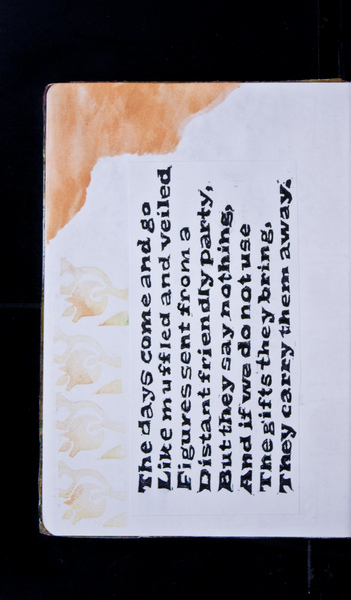 The days come and go
Like muffled and veiled
Figures sent from a
Distant friendly party,
But they say nothing,
And if we do not use
The gifts they bring,
They carry them away.